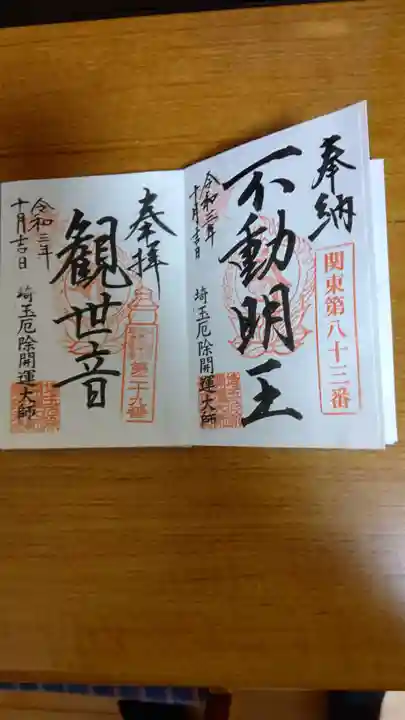 奉納
関東第八十三番
不動明王
令和三年
十月吉日
埼玉厄除開運大師
奉拝
第二十九番
観世音
令和三年
十月吉日
埼玉厄除開運大師